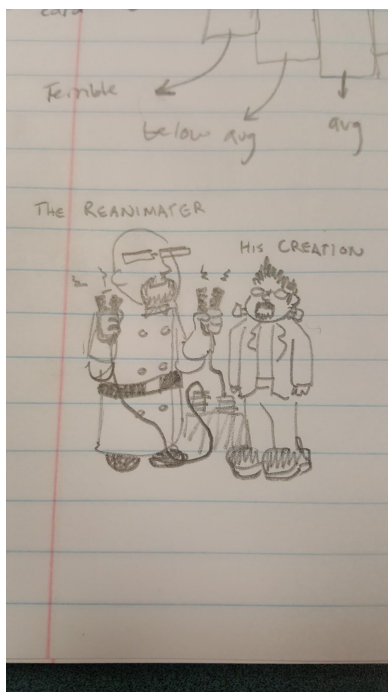 Terrible
below avg
avg
THE REANIMATER
HIS CREATION